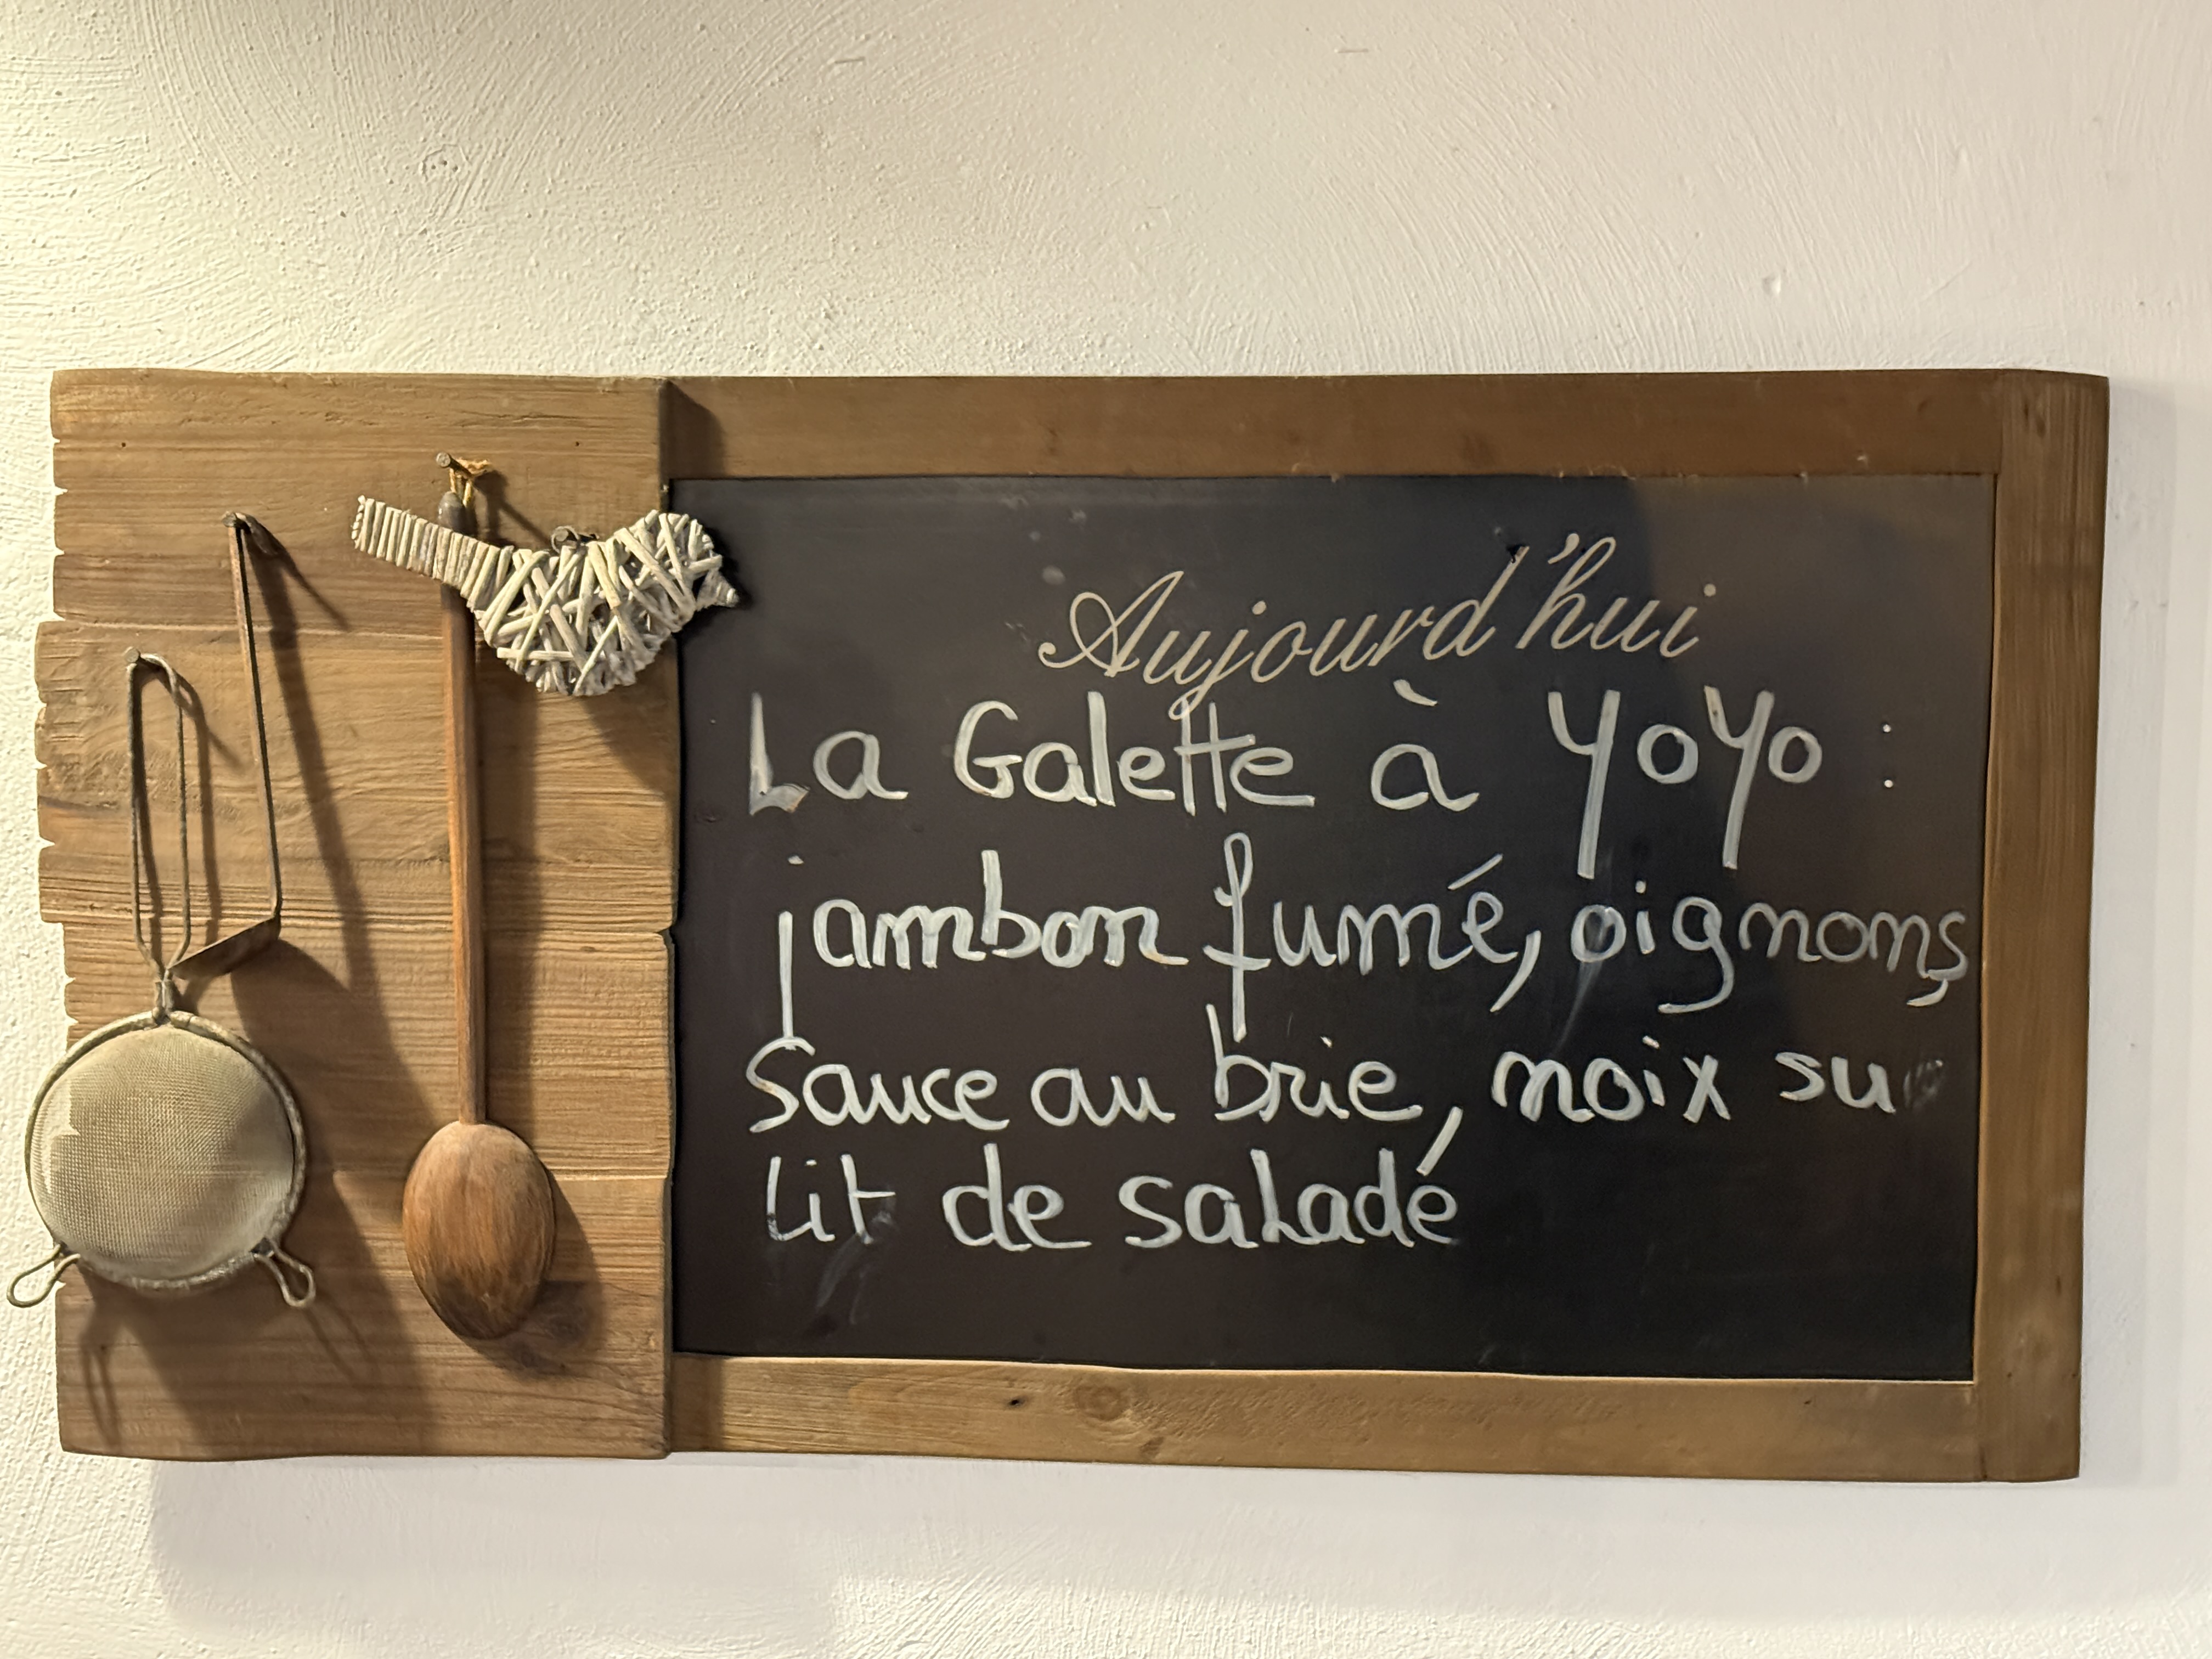 Aujourd'hui
La Galette à YoYo :
jambon fumé, oignons,
Sauce au brie, noix su
lit de salade